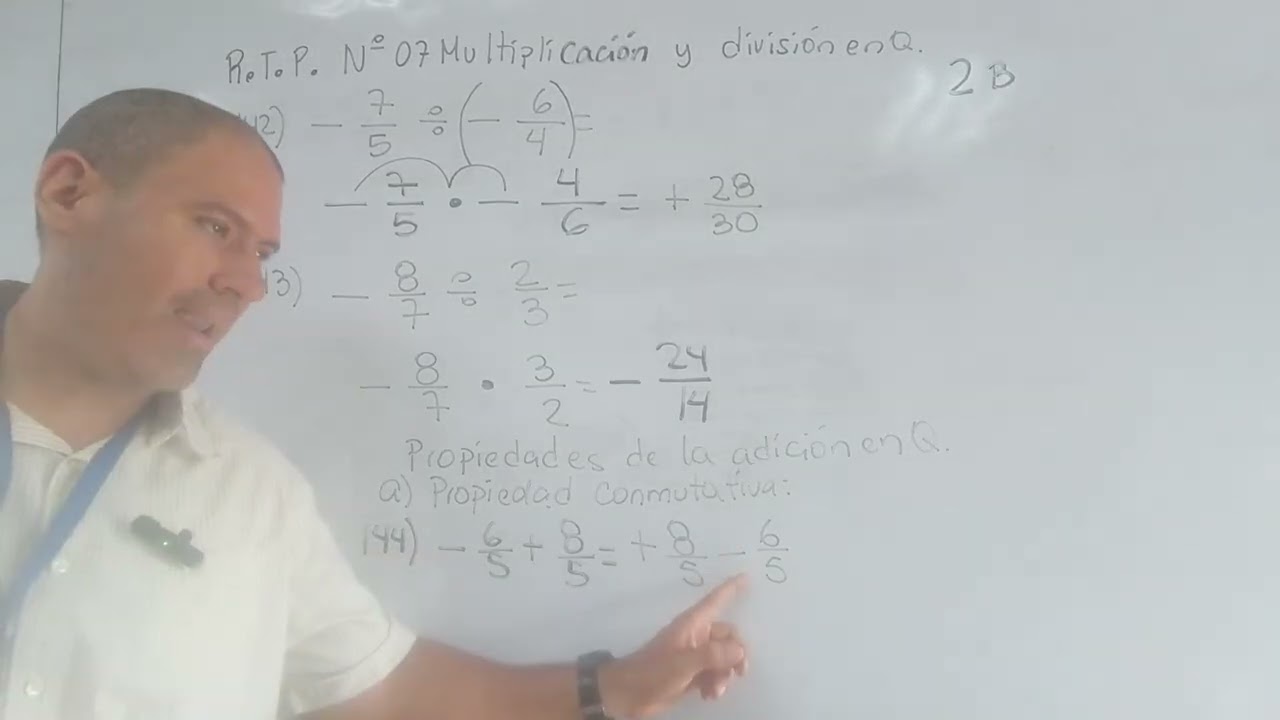 R.T.P. Nº 07 Multiplicación y división en Q.
2 B
42) - 7/5 ÷ (- 6/4) =
- 7/5 • - 4/6 = + 28/30
3) - 8/7 ÷ 2/3 =
- 8/7 • 3/2 = - 24/14
Propiedades de la adición en Q.
a) Propiedad conmutativa:
144) - 6/5 + 8/5 = + 8/5 - 6/5